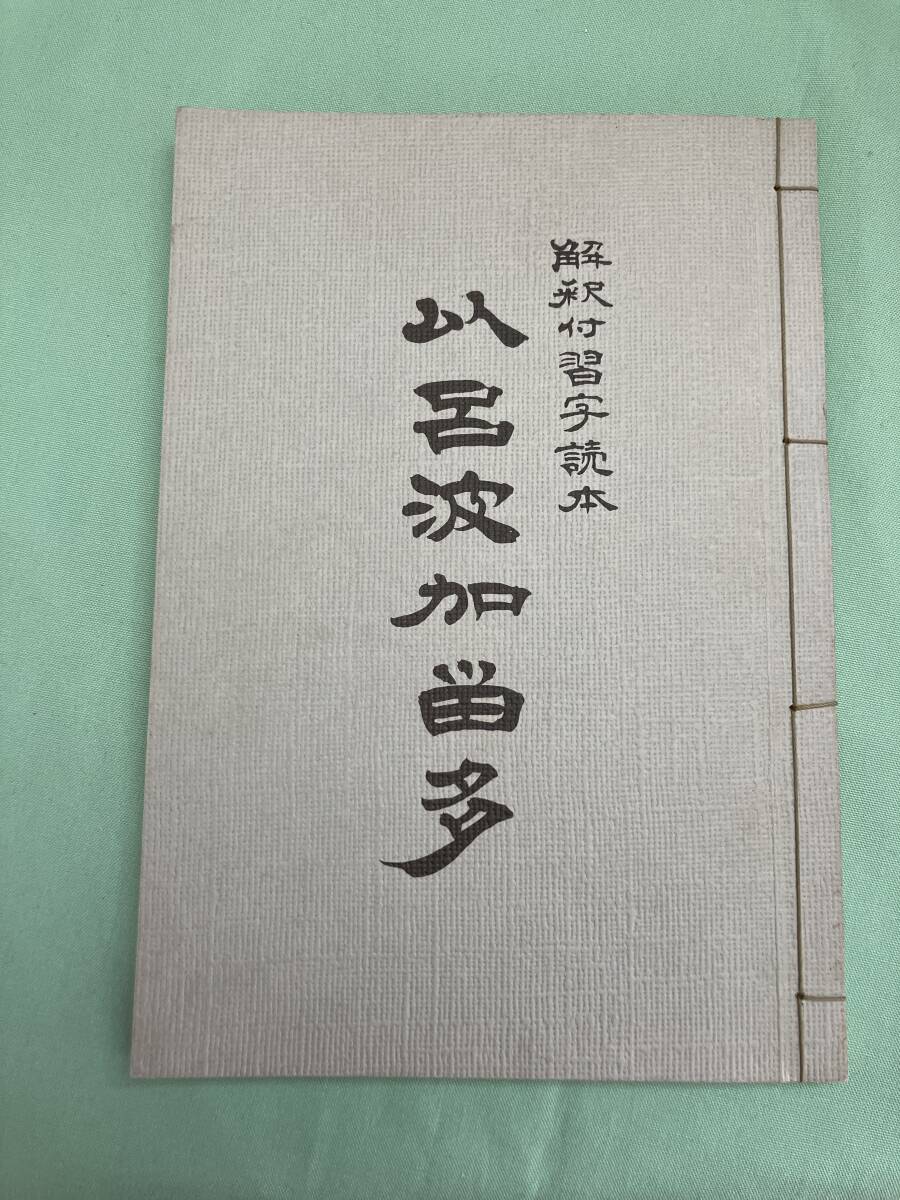 解釈付習字読本
以呂波加畄多